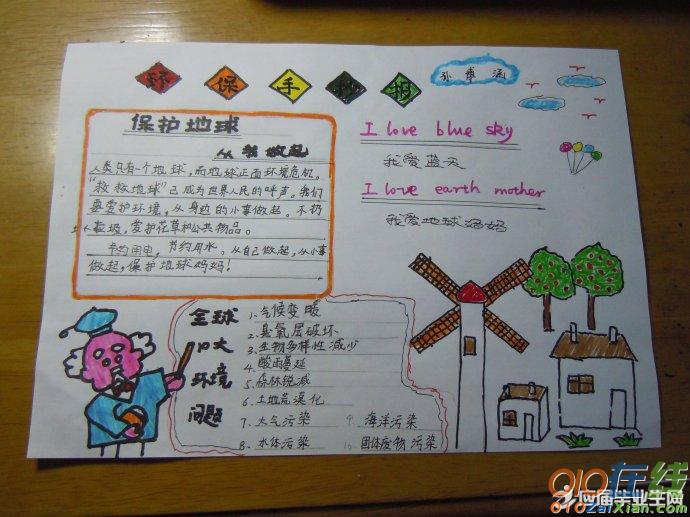 环保手抄报
孙睿涵
保护地球
从我做起
人类只有一个地球，而地球正面环境危机。
"救救地球"已成为世界人民的呼声。我们
要爱护环境，从身边的小事做起。不扔
垃圾，爱护花草和公共物品。
节约用电，节约用水。从自己做起，从小事
做起，保护地球妈妈！
I love blue sky
我爱蓝天
I love earth mother
我爱地球妈妈
全球
十大
环境
问题
1、气候变暖
2、臭氧层破坏
3、生物多样性减少
4、酸雨蔓延
5、森林锐减
6、土地荒漠化
7、大气污染
8、水体污染
9、海洋污染
10、固体废物污染
010在线
应届毕业生网
010zaixian.com